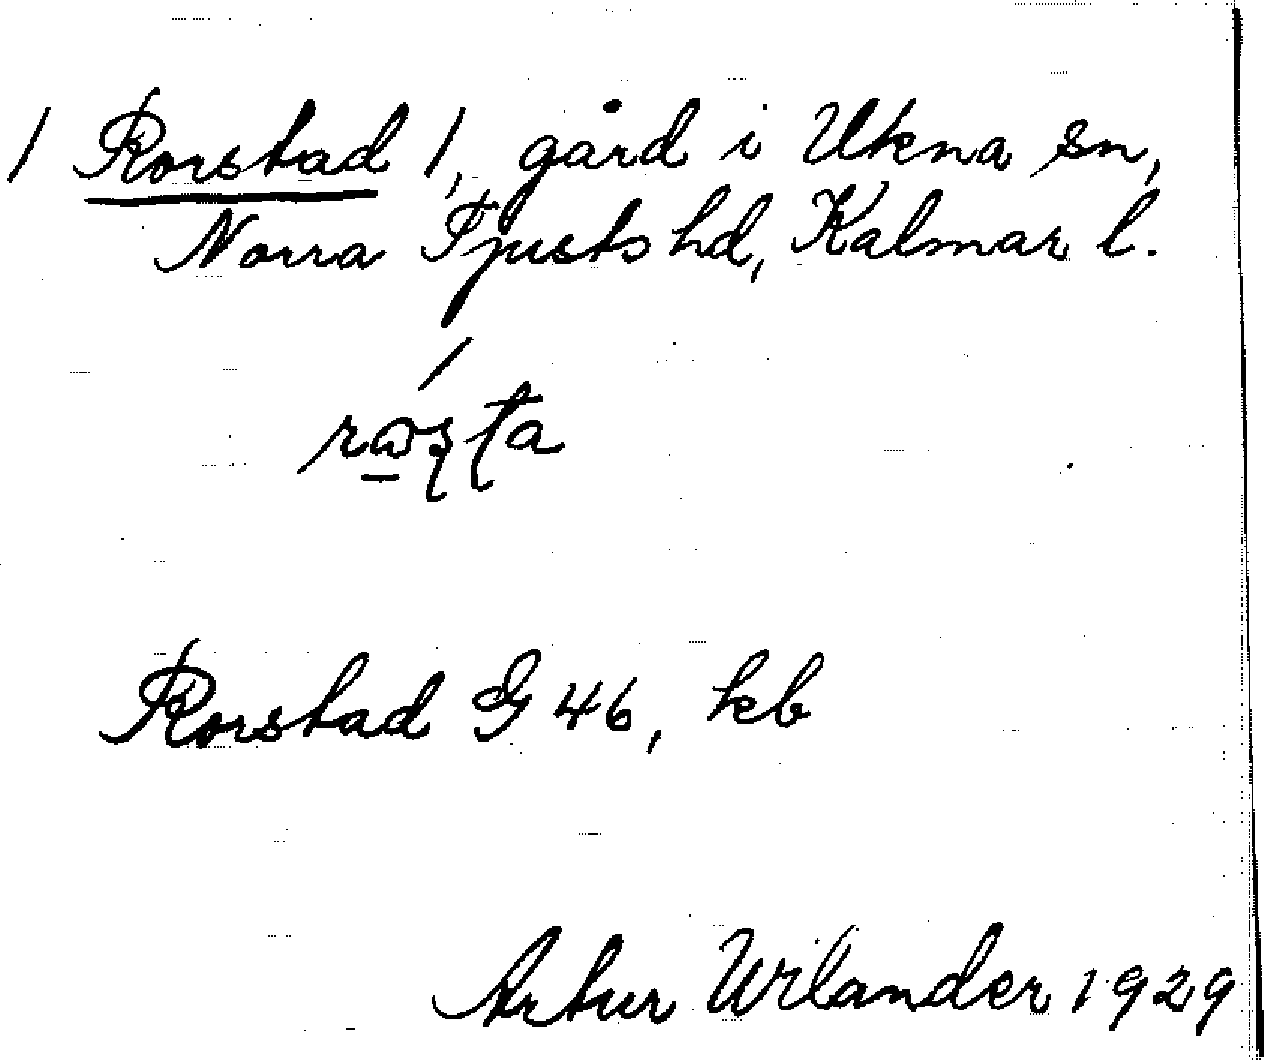 / Rorstad /, gård i Ukna sn,
Norra Tjusts hd, Kalmar l.
Rorstad G 46, kb
Artur Wilander 1929